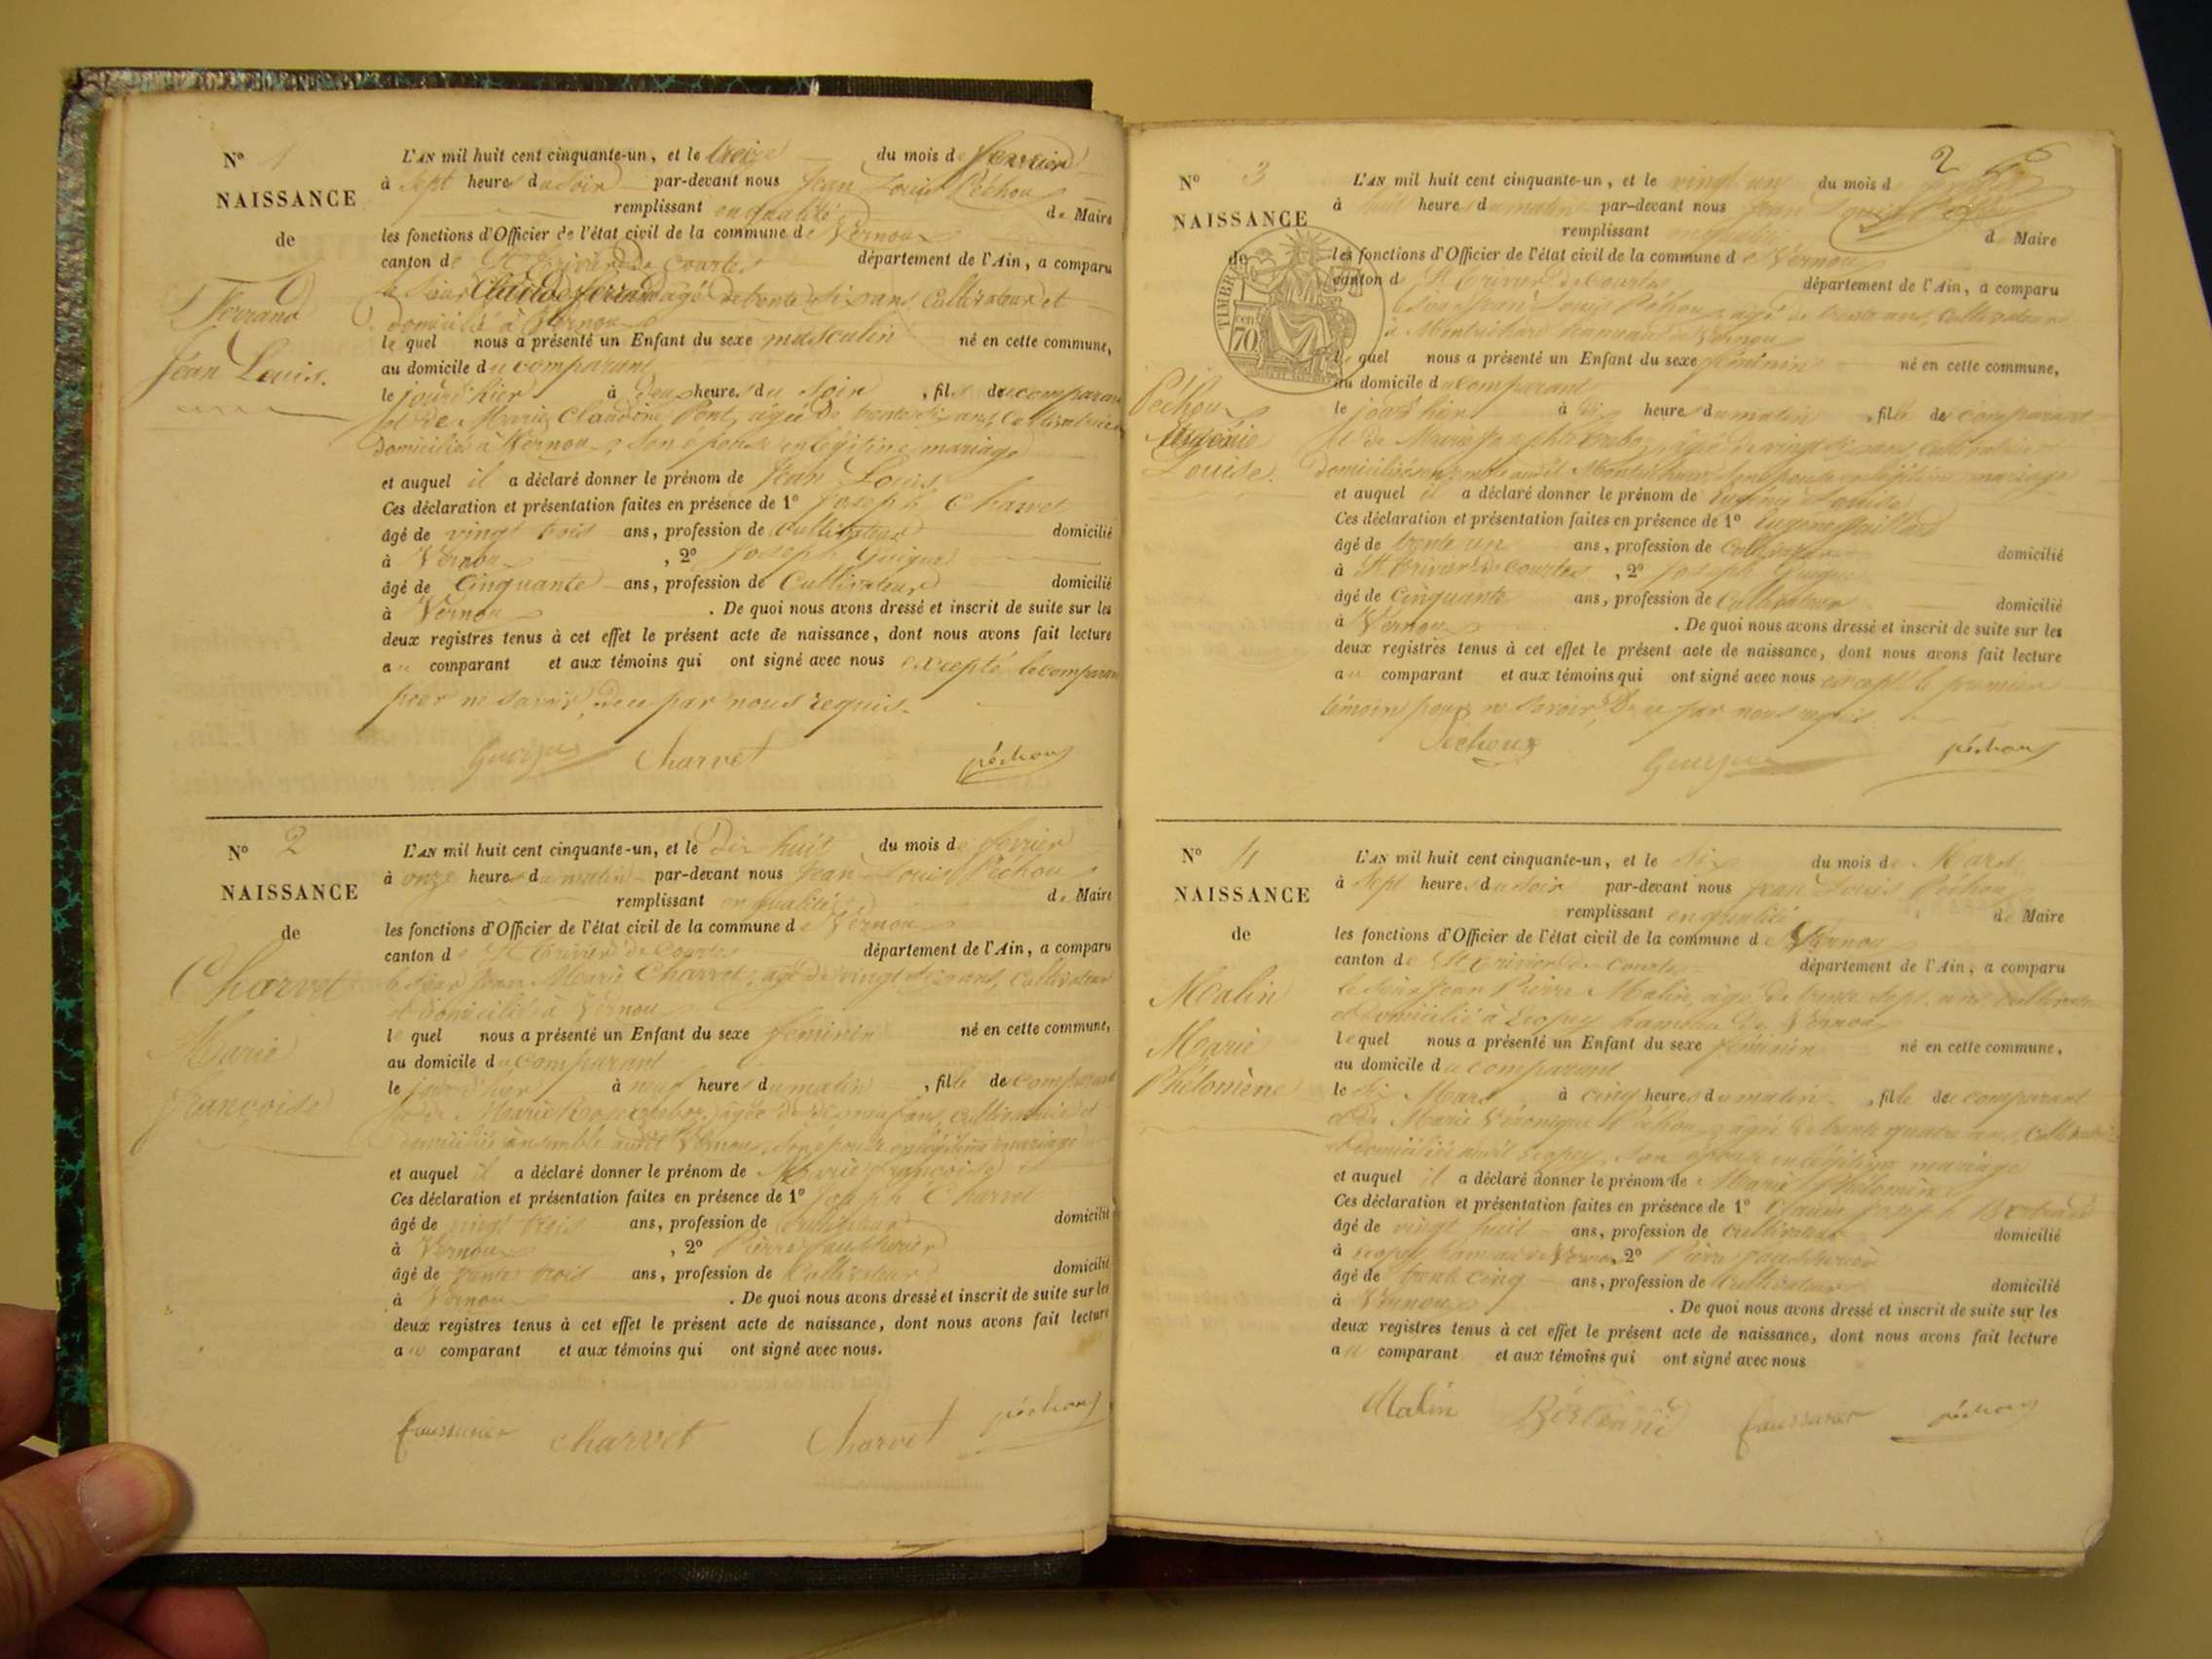 N° 1
NAISSANCE
de
Ferrand
Jean Louis.
L'AN mil huit cent cinquante-un, et le treize du mois de
à Sept heures du soir par-devant nous Jean Louis Péchoux
remplissant en qualité de Maire
les fonctions d'Officier de l'état civil de la commune de Vernoux
canton de St Trivier de Courtes département de l'Ain, a comparu
le Sieur Claude Ferrand agé de trente six ans, Cultivateur et
domicilié à Vernoux
lequel nous a présenté un Enfant du sexe masculin né en cette commune,
au domicile du comparant
le jour d'hier à deux heures du soir, fils du comparant
et de Marie Claudine Pont, agée de trente six ans, Cultivatrice
domiciliée à Vernoux, son épouse en légitime mariage
et auquel il a déclaré donner le prénom de Jean Louis
Ces déclaration et présentation faites en présence de 1° Joseph Charvet
âgé de vingt trois ans, profession de cultivateur domicilié
à Vernoux, 2° Joseph Guigue
âgé de Cinquante ans, profession de Cultivateur domicilié
à Vernoux. De quoi nous avons dressé et inscrit de suite sur les
deux registres tenus à cet effet le présent acte de naissance, dont nous avons fait lecture
au comparant et aux témoins qui ont signé avec nous excepté le comparant
pour ne savoir, de ce par nous requis.
Guigue Charvet péchoux
N° 2
NAISSANCE
de
Charvet
Marie
françoise
L'AN mil huit cent cinquante-un, et le Dix huit du mois de fevrier
à onze heures du matin par-devant nous Jean Louis Péchoux
remplissant en qualité de Maire
les fonctions d'Officier de l'état civil de la commune de Vernoux
canton de St Trivier de Courtes département de l'Ain, a comparu
le Sieur Jean Marie Charvet, agé de vingt six ans, Cultivateur
et domicilié à Vernoux
lequel nous a présenté un Enfant du sexe féminin né en cette commune,
au domicile du comparant
le jour d'hier à neuf heures du matin, fille du comparant
et de Marie Rose agée de dix neuf ans, cultivatrice et
domiciliée ensemble audit Vernoux, son épouse en légitime mariage
et auquel il a déclaré donner le prénom de Marie françoise
Ces déclaration et présentation faites en présence de 1° Joseph Charvet
âgé de vingt trois ans, profession de Cultivateur domicilié
à Vernoux, 2° Pierre
âgé de trente trois ans, profession de Cultivateur domicilié
à Vernoux. De quoi nous avons dressé et inscrit de suite sur les
deux registres tenus à cet effet le présent acte de naissance, dont nous avons fait lecture
au comparant et aux témoins qui ont signé avec nous.
charvet Charvet péchoux
2
N° 3
NAISSANCE
de
TIMBRE
70
Péchoux
Eugénie
Louise.
L'AN mil huit cent cinquante-un, et le vingt un du mois d
à huit heures du matin par-devant nous Jean Louis Péchoux
remplissant en qualité de Maire
les fonctions d'Officier de l'état civil de la commune de Vernoux
canton de St Trivier de Courtes département de l'Ain, a comparu
le Sieur Jean Louis Péchoux, agé de trente ans, Cultivateur
à hameau de Vernoux
lequel nous a présenté un Enfant du sexe féminin né en cette commune,
au domicile du Comparant
le jour d'hier à dix heures du matin, fille du comparant
et de Marie agée de vingt six ans, cultivatrice
son épouse en légitime mariage
et auquel il a déclaré donner le prénom de Louise
Ces déclaration et présentation faites en présence de 1° Eugène
âgé de trente un ans, profession de Cultivateur domicilié
à St Trivier de Courtes, 2° Joseph Guigue
âgé de Cinquante ans, profession de Cultivateur domicilié
à Vernoux. De quoi nous avons dressé et inscrit de suite sur les
deux registres tenus à cet effet le présent acte de naissance, dont nous avons fait lecture
au comparant et aux témoins qui ont signé avec nous excepté le premier
témoin pour ne savoir, de ce par nous requis
Péchoux Guigue péchoux
N° 4
NAISSANCE
de
Malin
Marie
Phélomène
L'AN mil huit cent cinquante-un, et le six du mois de Mars
à Sept heures du soir par-devant nous Jean Louis Péchoux
remplissant en qualité de Maire
les fonctions d'Officier de l'état civil de la commune de Vernoux
canton de St Trivier de Courtes département de l'Ain, a comparu
le Sieur Jean Pierre Malin, agé de trente sept ans cultivateur
et domicilié à hameau de Vernoux
lequel nous a présenté un Enfant du sexe féminin né en cette commune,
au domicile du comparant
le six Mars à cinq heures du matin, fille du comparant
et de Marie Véronique Péchoux, agée de trente quatre ans, Cultivatrice
et domiciliée audit son épouse en légitime mariage
et auquel il a déclaré donner le prénom de Marie Phélomène
Ces déclaration et présentation faites en présence de 1° Claude Joseph Bertrand
âgé de vingt huit ans, profession de cultivateur domicilié
à hameau de Vernoux, 2° Pierre
âgé de trente cinq ans, profession de Cultivateur domicilié
à Vernoux. De quoi nous avons dressé et inscrit de suite sur les
deux registres tenus à cet effet le présent acte de naissance, dont nous avons fait lecture
au comparant et aux témoins qui ont signé avec nous
Malin Bertrand péchoux